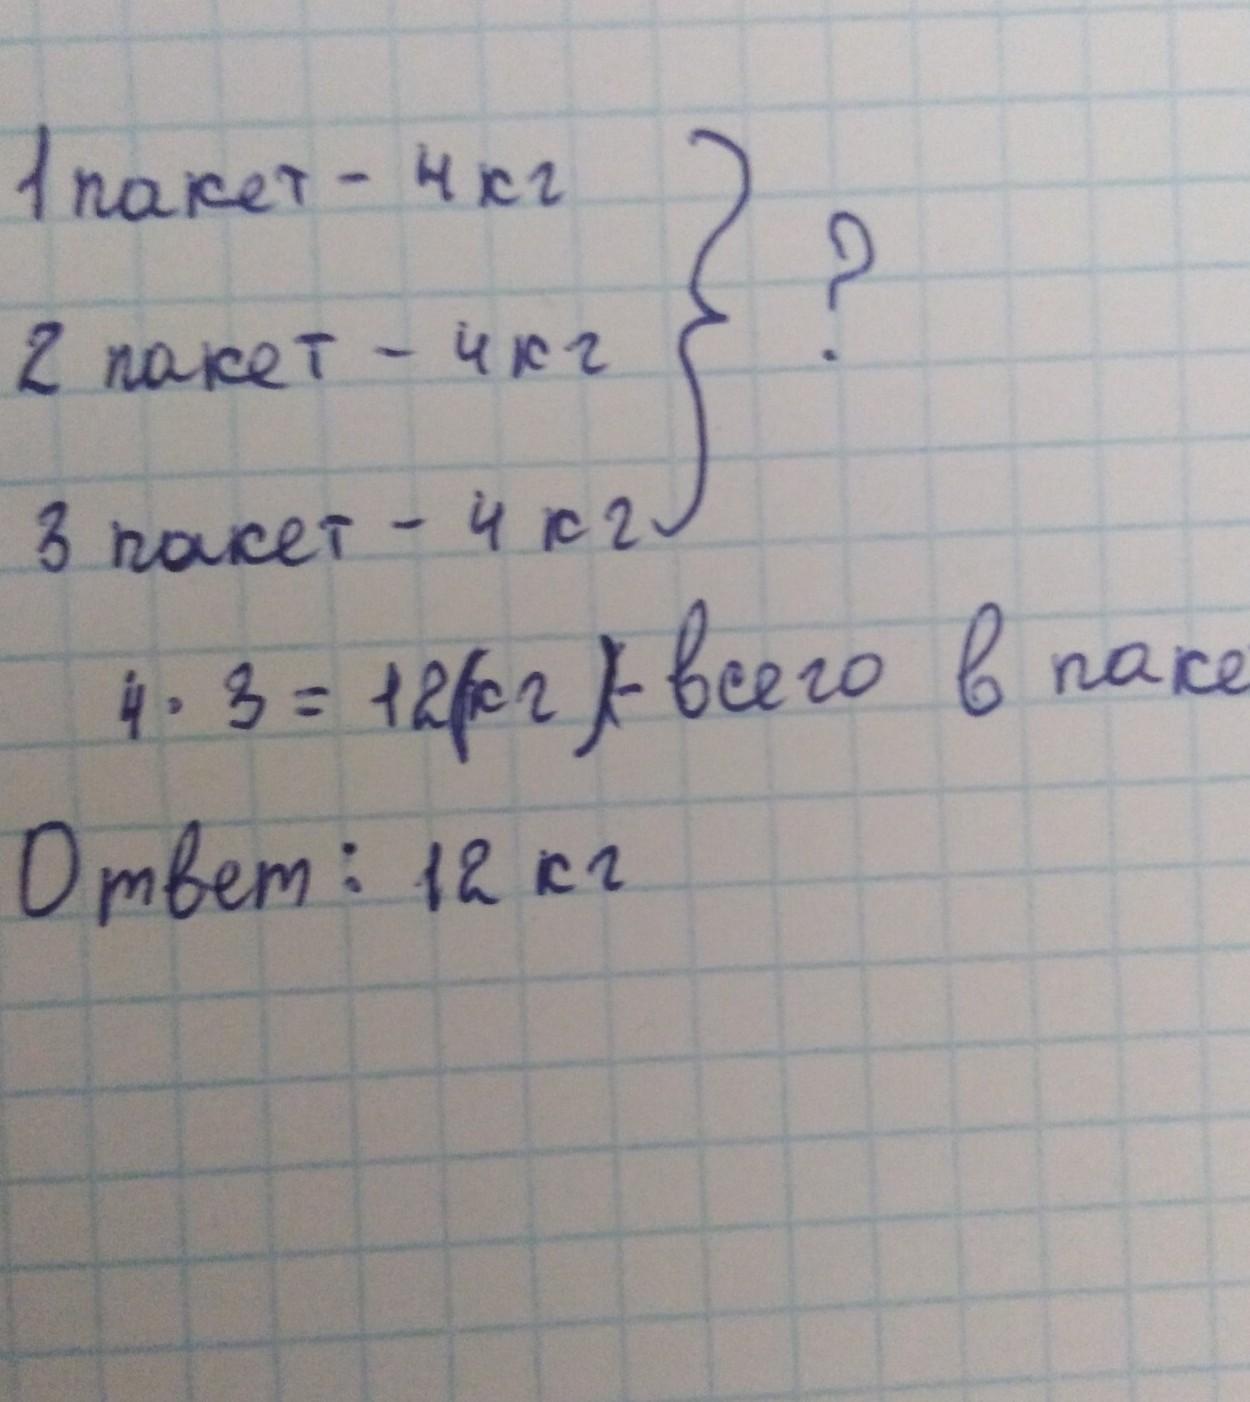 1 пакет - 4 кг
2 пакет - 4 кг
3 пакет - 4 кг
?
4 · 3 = 12(кг) - всего в паке
Ответ: 12 кг